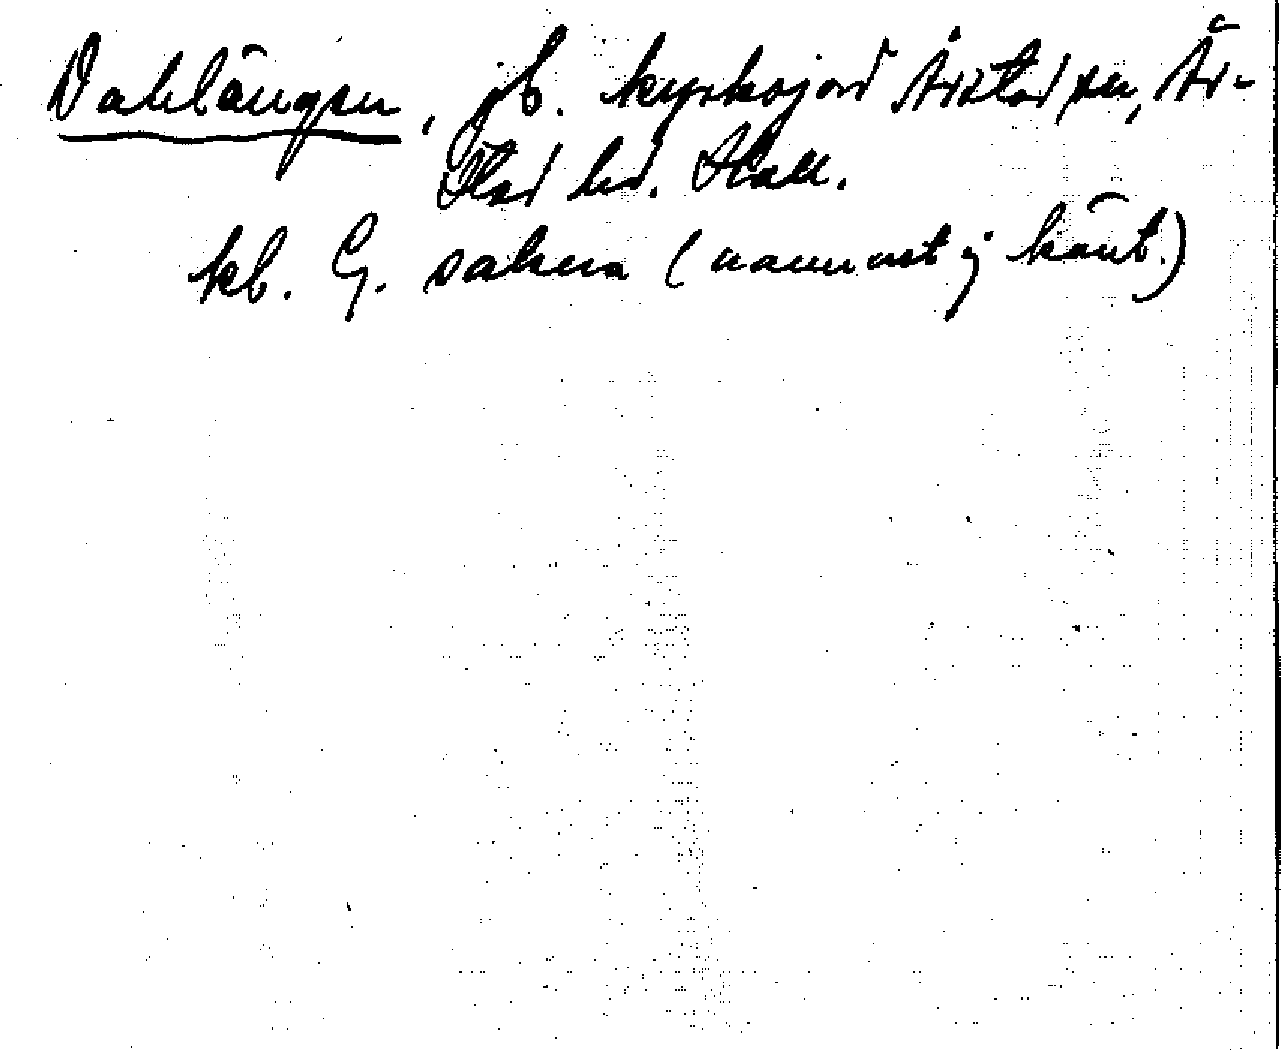 Dahlängen, jb. kyrkojord Årstad sn, År-
stad hd. Hall.
kb. G. sakna (namnet ej känt.)